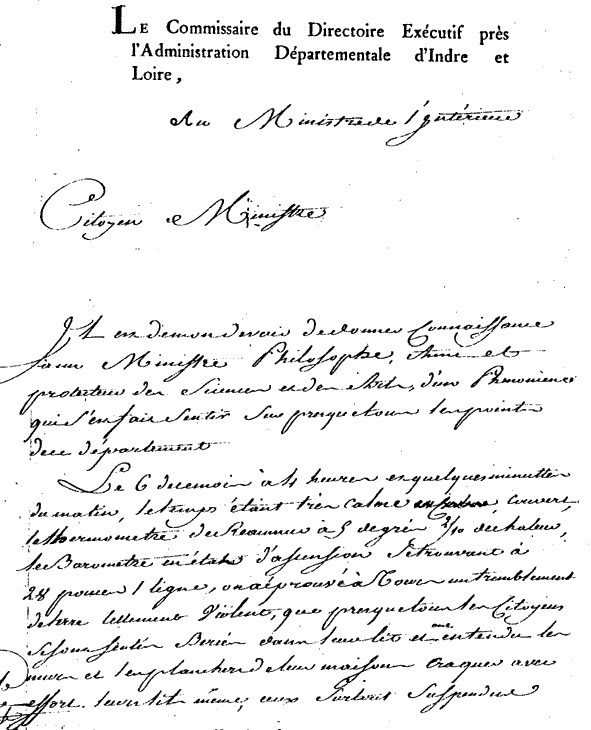 LE Commissaire du Directoire Exécutif près
l'Administration Départementale d'Indre et
Loire,
Au Ministre de l'Intérieur
Citoyen Ministre
Il est de mon devoir de donner Connaissance
a un Ministre Philosophe, Ami et
protecteur des Sciences et des Arts, d'un Phenomene
qui s'en fait Sentir Sur presque tous les points
de ce département
Le 6 de ce mois à 4 heures et quelques minuttes
du matin, le temps étant très calme couvert,
le thermometre de Reaumur à 5 degrés 3/10 de chaleur,
le Barometre en état d'assension Se trouvant à
28 pouces 1 ligne, on a éprouvé à Tours un tremblement
de terre tellement Violent, que presque tous les Citoyens
Se sont Sentis Bercés dans leur lit et ont entendu les
murs et les planchers de leur maison craquer avec
effort. les lits même, ceux Surtout Suspendus